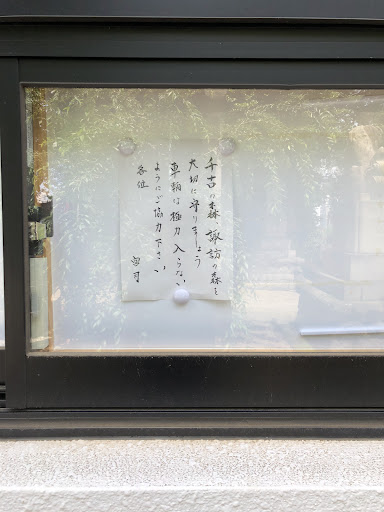 千古の森、諏訪の森を
大切に守りましょう
車輌は極力入らない
ようにご協力下さい。
各位
宮司